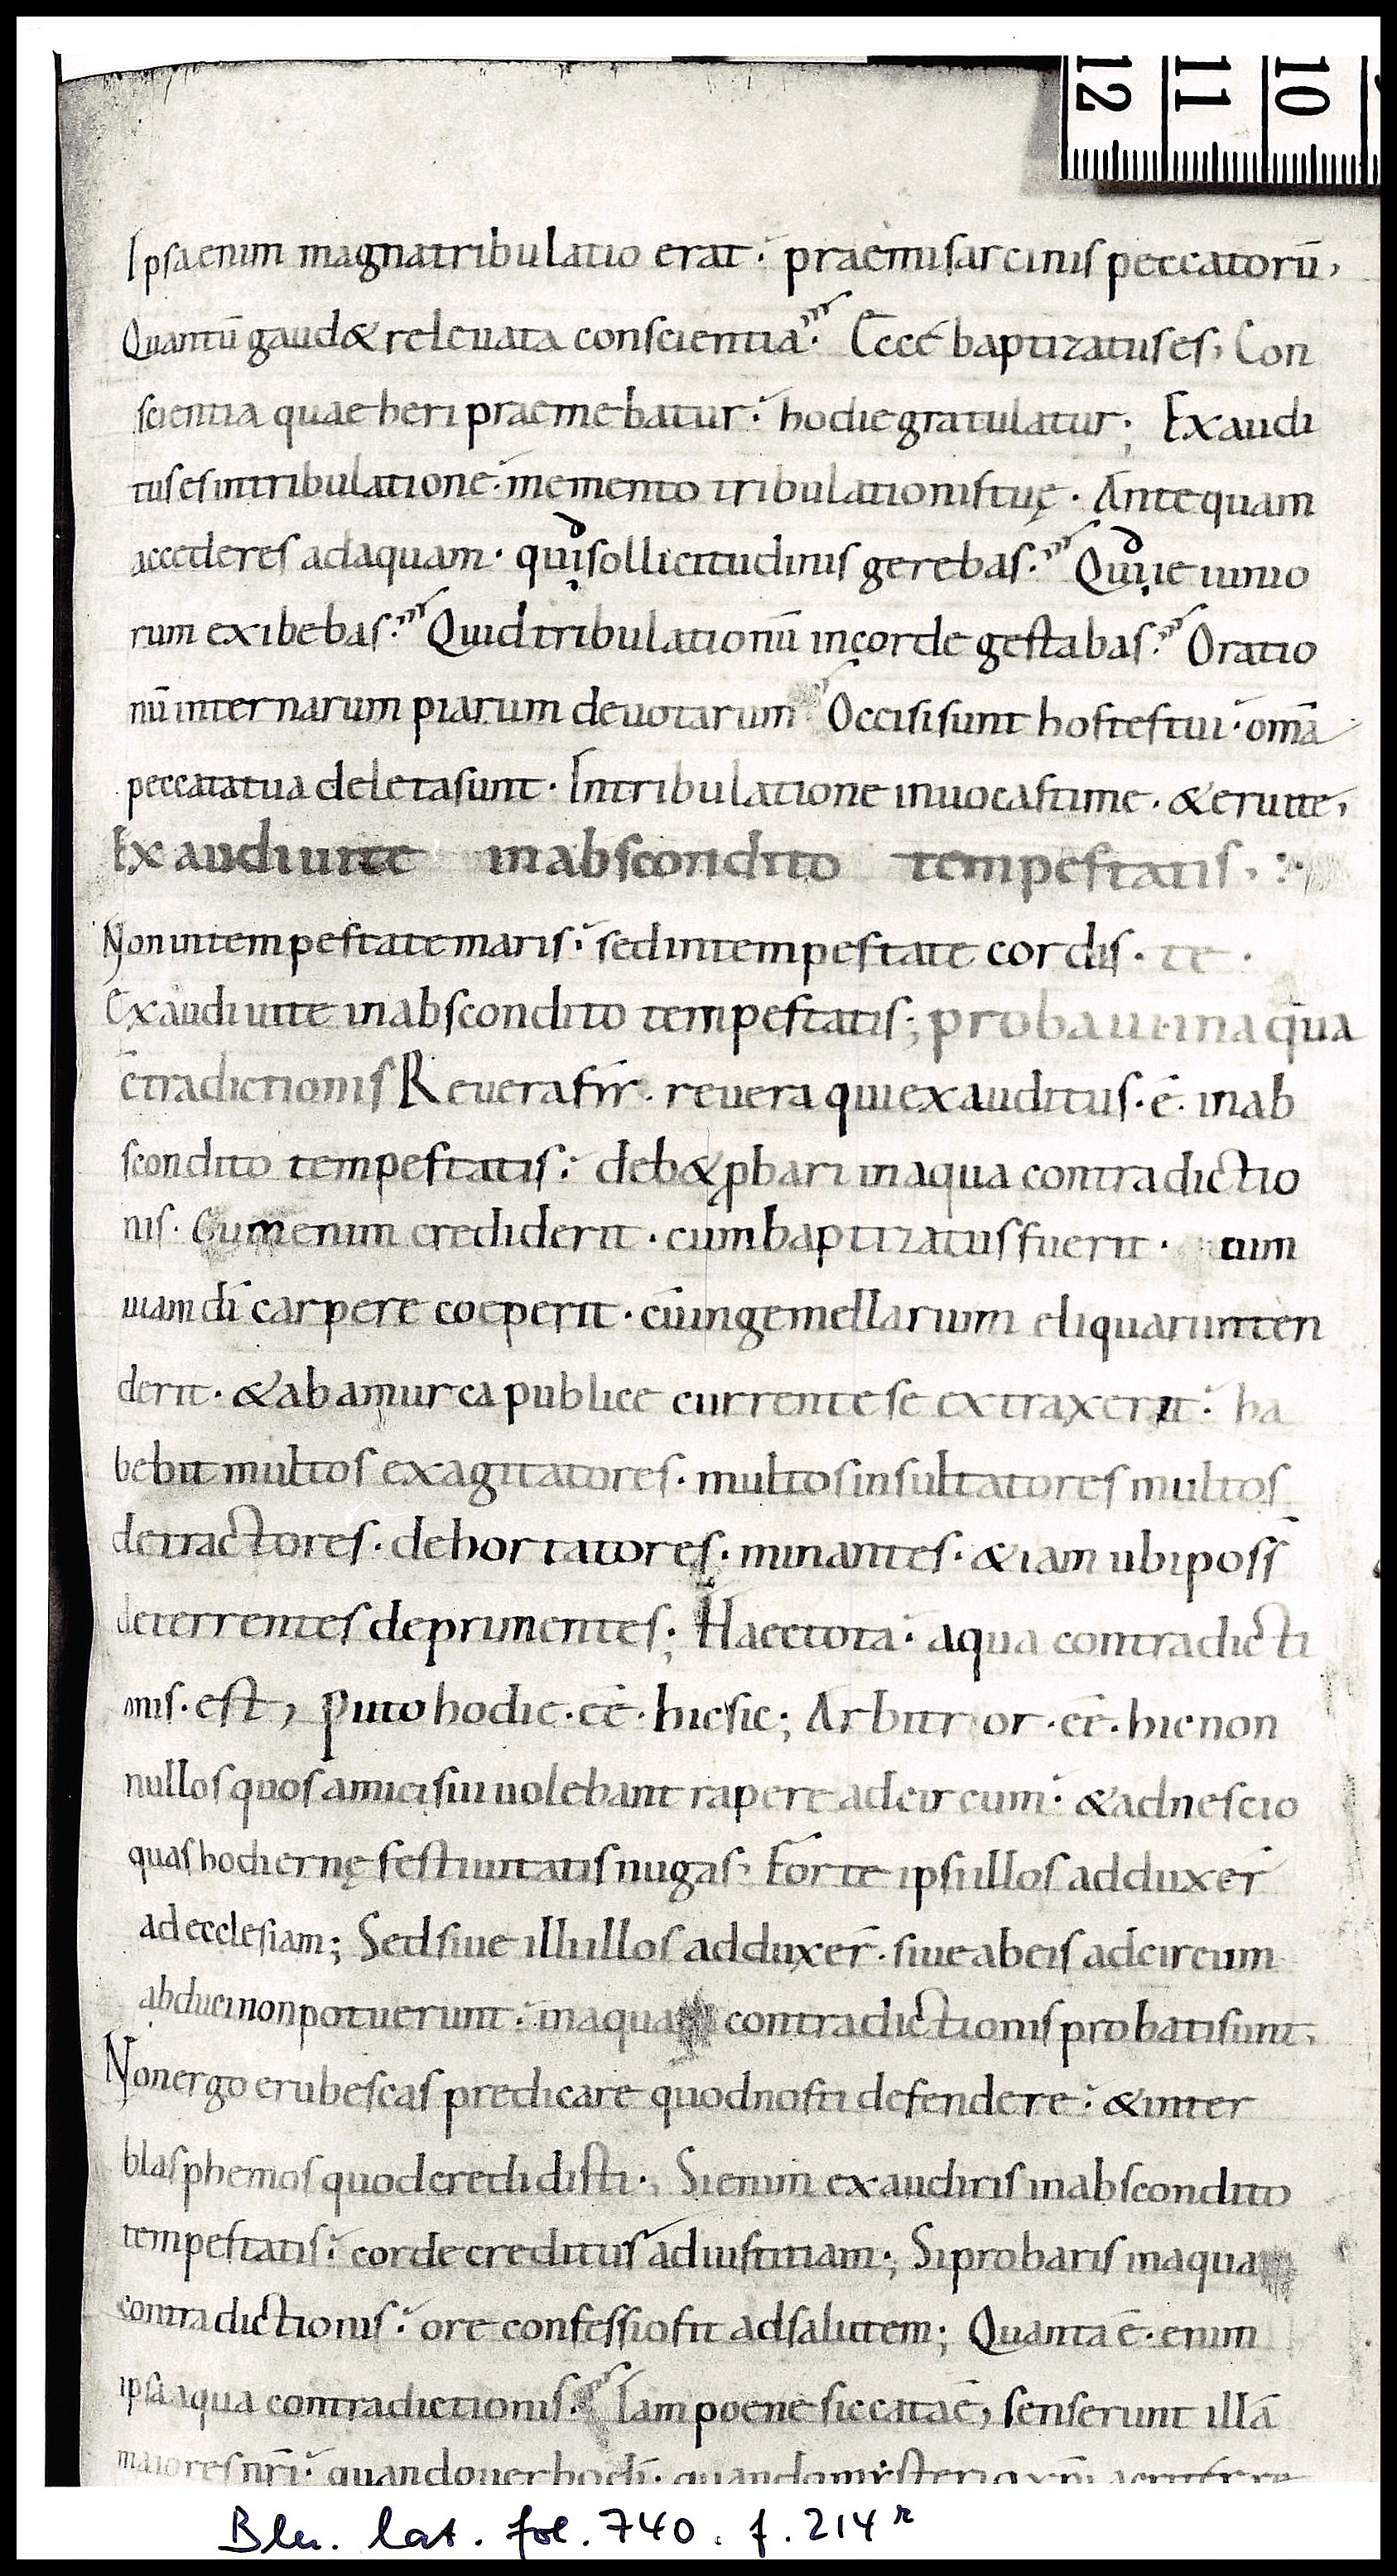 12 11 10
Ipsa enim magna tribulatio erat. praemi sarcinis peccatorū,
Quantū gaud& releuata conscientia. Ecce baptizatus es, Con
scientia quae heri praemebatur. hodie gratulatur; Exaudi
tus es in tribulatione. memento tribulationis tuę. Antequam
accederes ad aquam. qui sollicitudinis gerebas. Qui ieiunio
rum exibebas. Quid tribulationū in corde gestabas. Oratio
nū internarum piarum deuotarum Occisi sunt hostes tui. om̄a
peccata tua deleta sunt. In tribulatione inuocasti me. & erui te,
Exaudiui te in abscondito tempestatis.
Non in tempestate maris. sed in tempestate cordis. te.
Exaudiui te in abscondito tempestatis; probaui in aq̄ua
c̄tradictionis Reuera fr̄r. reuera qui exauditus. ē. in ab
scondito tempestatis. deb& ꝓbari in aqua contradictio
nis. Cum enim crediderit. cum baptizatus fuerit. cum
uiam dī carpere coeperit. cū in gemellarium eliquari inten
derit. & ab amurca publice currente se extraxerit. ha
bebit multos exagitatores. multos insultatores multos
detractores. dehortatores. minantes. & iam ubi poss̄
deterrentes deprimentes; Haec tota. aqua contradicti
onis. est, Puto hodie. eē. hic sic; Arbitror. eē. hic non
nullos quos amici sui uolebant rapere ad circum. & ad nescio
quas hodiernę festiuitatis nugas, Forte ipsi illos adduxer̄
ad ecclesiam; Sed siue illi illos adduxer̄. siue ab eis ad circum
abduci non potuerunt. in aqua contradictionis probati sunt,
Non ergo erubescas predicare quod nosti defendere. & inter
blasphemos quod credidisti; Si enim exaudiris in abscondito
tempestatis. corde creditus ad iustitiam; Si probaris in aqua
contradictionis. ore confessio fit ad salutem; Quanta ē. enim
ipsa aqua contradictionis. Iam poene siccata ē, senserunt illā
maiores nr̄i. quando uerbo dī. quando mysterio xp̄i acriter re
Bln. lat. fol. 740. f. 214r